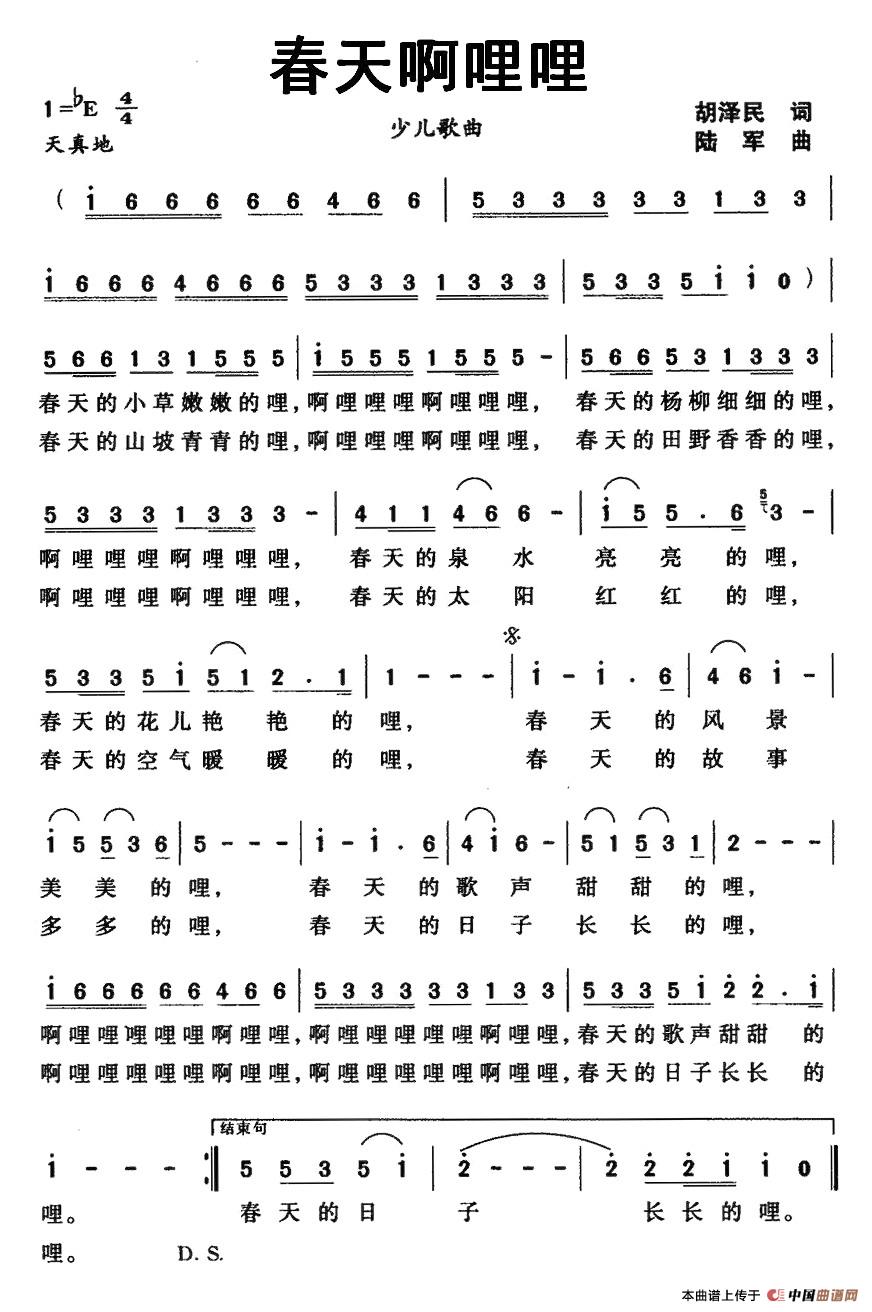 春天啊哩哩
1=♭E 4/4
少儿歌曲
胡泽民 词
天真地
陆军 曲
( i 6 6 6 6 6 4 6 6 | 5 3 3 3 3 3 1 3 3 |
i 6 6 6 4 6 6 6 5 3 3 3 1 3 3 3 | 5 3 3 5 i i 0 ) |
5 6 6 1 3 1 5 5 5 | i 5 5 5 1 5 5 5 - | 5 6 6 5 3 1 3 3 3 |
春天的小草嫩嫩的哩,啊哩哩哩啊哩哩哩, 春天的杨柳细细的哩,
春天的山坡青青的哩,啊哩哩哩啊哩哩哩, 春天的田野香香的哩,
5 3 3 3 1 3 3 3 - | 4 1 1 4 6 6 6 - | i 5 5 . 6 5 3 - |
啊哩哩哩啊哩哩哩, 春天的泉水亮亮的哩,
啊哩哩哩啊哩哩哩, 春天的太阳红红的哩,
5 3 3 5 i 5 1 2 . 1 | 1 - - - | i - i . 6 | 4 6 i - |
春天的花儿艳艳的哩, 春天的风景
春天的空气暖暖的哩, 春天的故事
i 5 5 3 6 | 5 - - - | i - i . 6 | 4 i 6 - | 5 1 5 3 1 | 2 - - - |
美美的哩, 春天的歌声甜甜的哩,
多多的哩, 春天的日子长长的哩,
i 6 6 6 6 6 4 6 6 | 5 3 3 3 3 3 1 3 3 | 5 3 3 5 i 2 2 . i |
啊哩哩哩哩哩啊哩哩,啊哩哩哩哩哩啊哩哩,春天的歌声甜甜的
啊哩哩哩哩哩啊哩哩,啊哩哩哩哩哩啊哩哩,春天的日子长长的
结束句
i - - - :‖ 5 5 3 5 i | 2 - - - | 2 2 2 i i 0 ‖
哩。 春天的日子长长的哩。
哩。 D.S.
本曲谱上传于 中国曲谱网